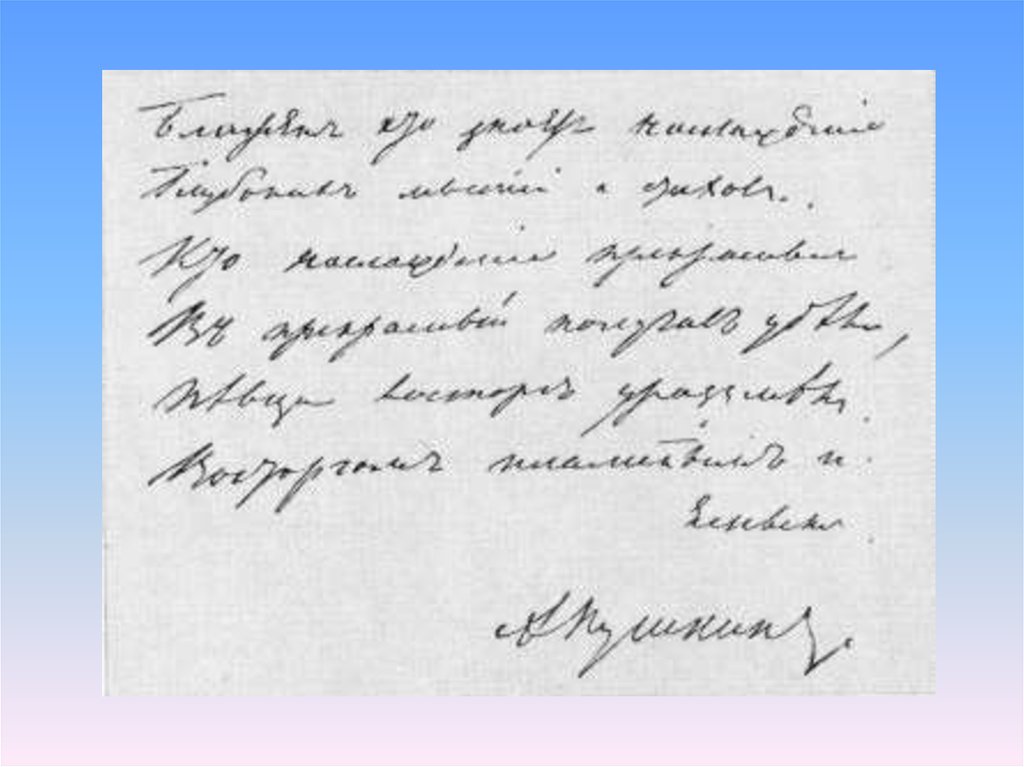 Блаженъ кто знаетъ наслажденіе
Глубокихъ мыслей и стиховъ..
Кто наслажденіе прекраснымъ
Въ прекрасный получилъ удѣлъ,
Пѣвца восторгъ уразумѣлъ
Восторгомъ пламеннымъ и
Яснымъ
А Пушкинъ.